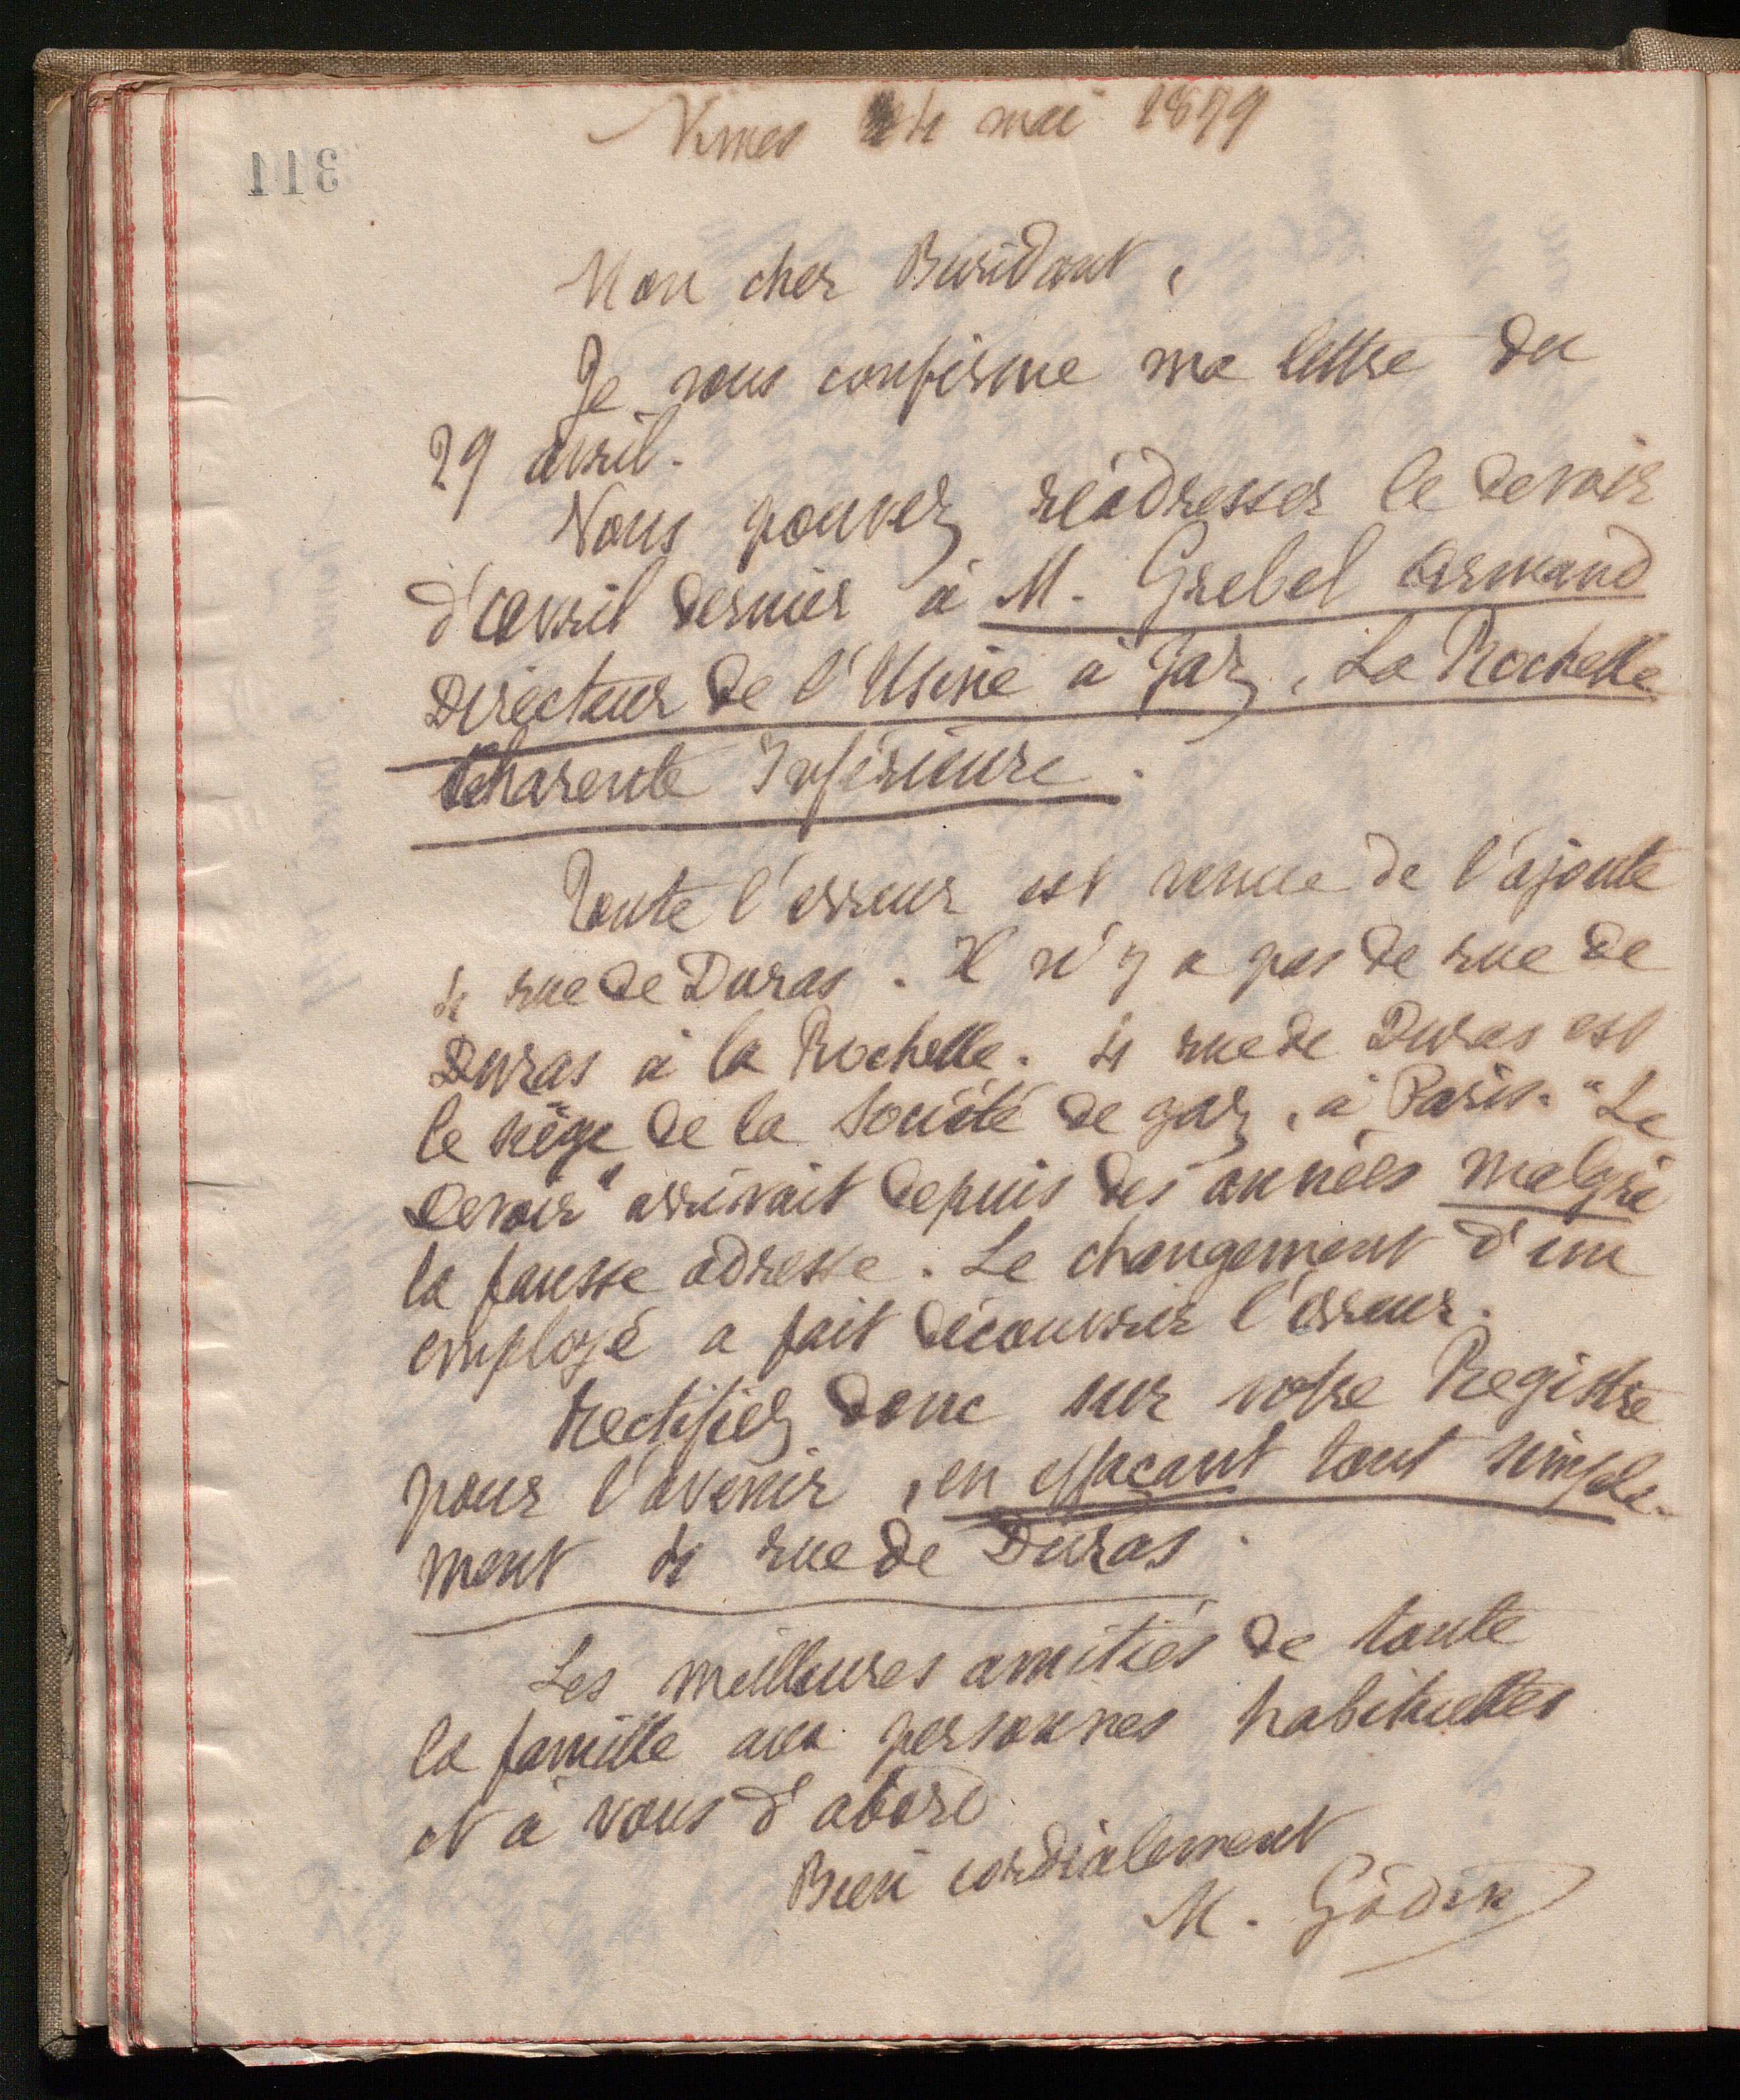 311
Nimes 4 mai 1899
Mon cher Buridant,
Je vous confirme ma lettre du
29 avril.
Vous pouvez réadresser le devoir
d'avril dernier à M. Grebel Armand
Directeur de l'Usine à gaz, La Rochelle
Charente Inférieure.
Toute l'erreur est venue de l'ajoute
4 rue de Duras. Il n'y a pas de rue de
Duras à la Rochelle. 4 rue de Duras est
le siège de la Société de gaz, à Paris. "Le
Devoir" arrivait depuis des années malgré
la fausse adresse. Le changement d'un
employé a fait découvrir l'erreur.
Rectifiez donc sur votre Registre
pour l'avenir, en effaçant tout simple-
ment 4 rue de Duras.
Les meilleures amitiés de toute
la famille aux personnes habituelles
et à vous d'abord
Bien cordialement
M. Godin